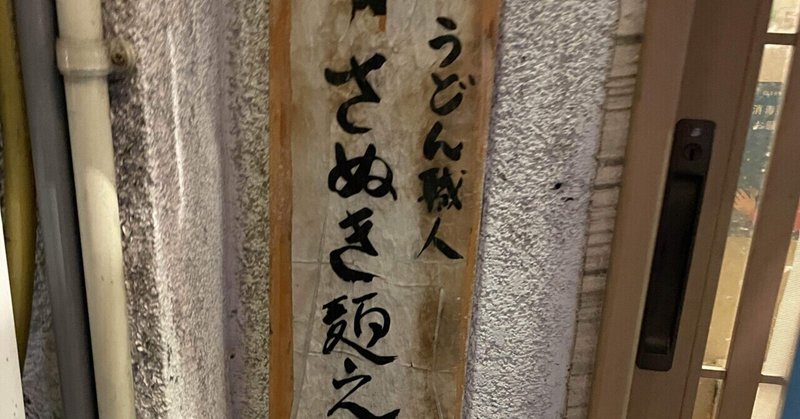 うどん職人
さぬき麺之
消毒